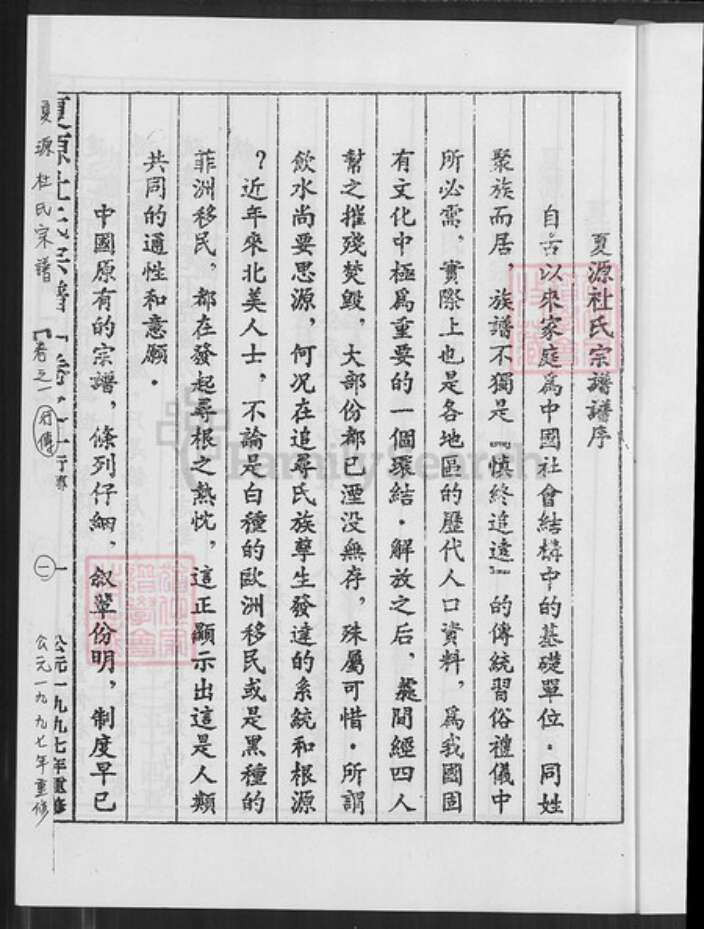 夏源杜氏宗譜譜序
自古以來家庭為中國社會結構中的基礎單位．同姓
聚族而居，族譜不獨是『慎終追遠』的傳統習俗禮儀中
所必需，實際上也是各地區的歷代人口資料，為我國固
有文化中極為重要的一個環結．解放之后，間經四人
幫之摧殘焚毀，大部份都已湮没無存，殊屬可惜．所謂
飲水尚要思源，何况在追尋氏族孳生發達的系統和根源
？近年來北美人士，不論是白種的歐洲移民或是黑種的
菲洲移民，都在發起尋根之熱忱，這正顯示出這是人類
共同的通性和意願．
中國原有的宗譜，條列仔細，叙輩份明，制度早已
夏源杜氏宗譜 卷之一 行傳 一 公元一九九七年重修
夏源杜氏宗譜『卷之一 行傳 一 公元一九九七年重修
FamilySearch